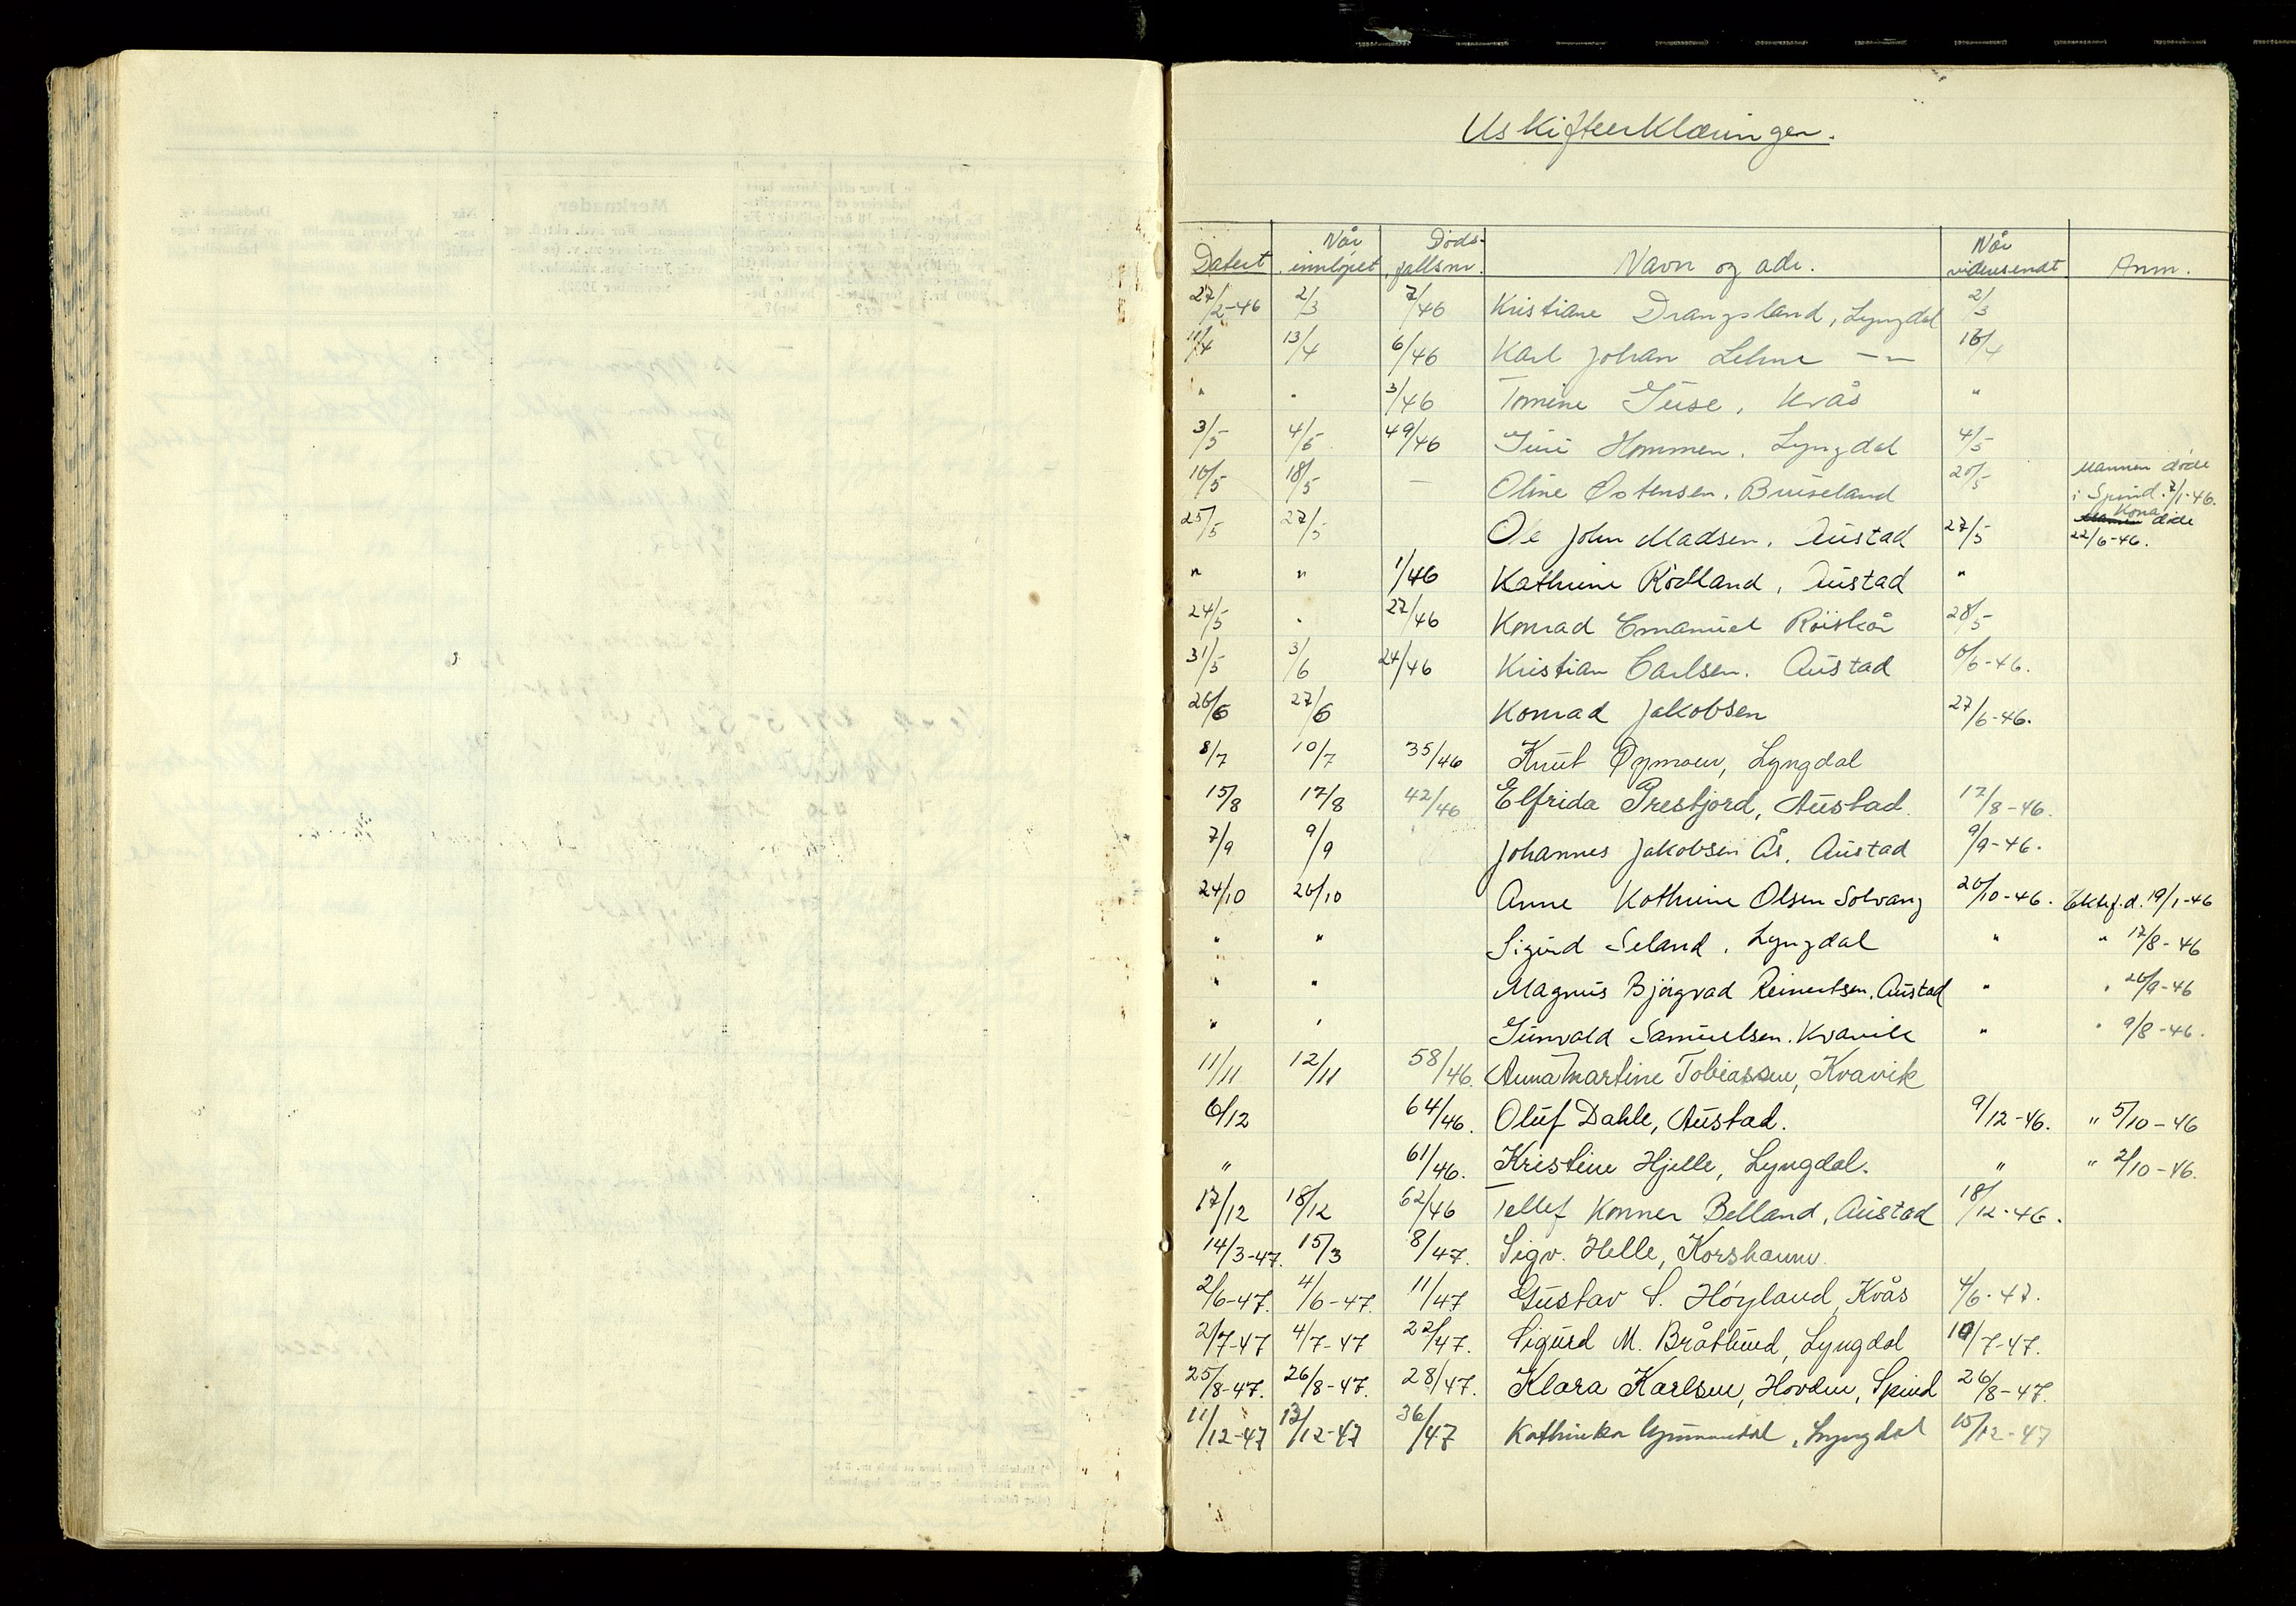 Uskifteerklæringer.
Datert Når innløpet Døds-fallsnr. Navn og adr. Når videresendt Anm.
27/2-46 2/3 7/46 Kristiane Drangsland, Lyngdal 2/3
11/4 13/4 6/46 Karl Johan Lehne —"— 16/4
" " 3/46 Tomine Guse, Kvås "
3/5 4/5 49/46 Guri Hommen, Lyngdal 4/5
16/5 18/5 — Oline Ostensen, Bruseland 20/5 Mannen døde i Spind 7/1-46.
25/5 27/5 Ole John Madsen, Austad 27/5 Kona døde 22/6-46.
" " 1/46 Kathrine Rödland, Austad "
24/5 " 27/46 Konrad Emanuel Röiskår 28/5
31/5 3/6 24/46 Kristian Carlsen, Austad 6/6-46.
26/6 27/6 Konrad Jakobsen 27/6-46.
8/7 10/7 35/46 Knut Øymoen, Lyngdal
15/8 17/8 42/46 Elfrida Prestjord, Austad. 17/8-46.
7/9 9/9 Johannes Jakobsen Ås, Austad 9/9-46.
24/10 26/10 Anne Kathrine Olsen Solvang 26/10-46. Ektef. d. 19/1-46
" " Sigurd Seland, Lyngdal " " 17/8-46
" " Magnus Björgvad Reinertsen, Austad " " 26/9-46
" " Gunvald Samuelsen, Kvavik " " 9/8-46.
11/11 12/11 58/46. Anna Martine Tobiassen, Kvavik
6/12 64/46. Oluf Dahle, Austad. 9/12-46. " 5/10-46
" 61/46. Kristine Hjelle, Lyngdal. " " 2/10-46.
17/12 18/12 62/46 Tellef Konner Belland, Austad 18/12-46.
14/3-47. 15/3 8/47. Sigv. Helle, Korshamn.
2/6-47. 4/6-47. 11/47 Gustav S. Høyland, Kvås 4/6-47.
2/7-47 4/7-47 22/47. Sigurd M. Bråtlund, Lyngdal 10/7-47.
25/8-47. 26/8-47. 28/47. Klara Karlsen, Hovden, Spind 26/8-47.
11/12-47 13/12-47 36/47 Kathinka Lyngdal 15/12-47